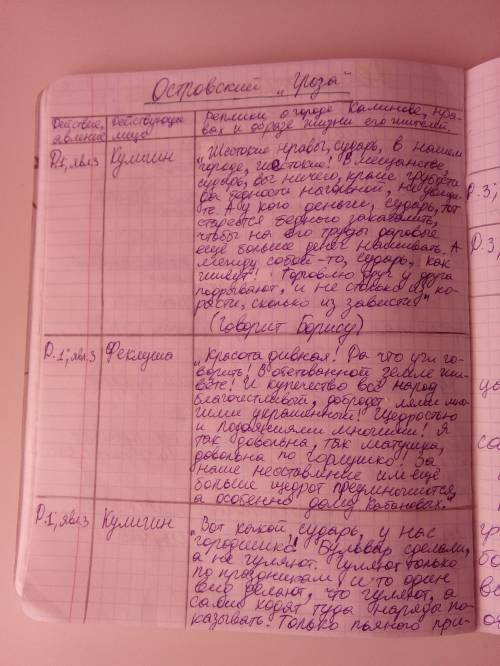 Островский „Гроза"
Действие, явление
Действующие лица
Реплики о городе Калинове, нра-
вах и образе жизни его жителей.
Д.1, явл.3
Кулигин
„Жестокие нравы, сударь, в нашем
городе, жестокие! В мещанстве,
сударь, вы ничего, кроме грубости
да бедности нагольной, не увиди-
те. А у кого деньги, сударь, тот
старается бедного закабалить,
чтобы на его труды даровые
еще больше денег наживать. А
между собой-то, сударь, как
живут! Торговлю друг у друга
подрывают, и не столько из ко-
рысти, сколько из зависти"
(Говорит Борису)
Д.1; явл.3
Феклуша
„Красота дивная! Да что уж го-
ворить! В обетованной земле жи-
вете! И купечество все народ
благочестивый, добродетелями мно-
гими украшенный! Щедростью
и подаяниями многими! Я
так довольна, так, матушка,
довольна по горлушко! За
наше неоставление им еще
больше щедрот преумножится,
а особенно дому Кабановых."
Д.1; явл.3
Кулигин
„Вот какой сударь, у нас
городишко! Бульвар сделали,
а не гуляют. Гуляют только
по праздникам, и то один
вид делают, что гуляют, а
сами ходят туда наряды по-
казывать. Только пьяного при-
Д.3;
Д.3,